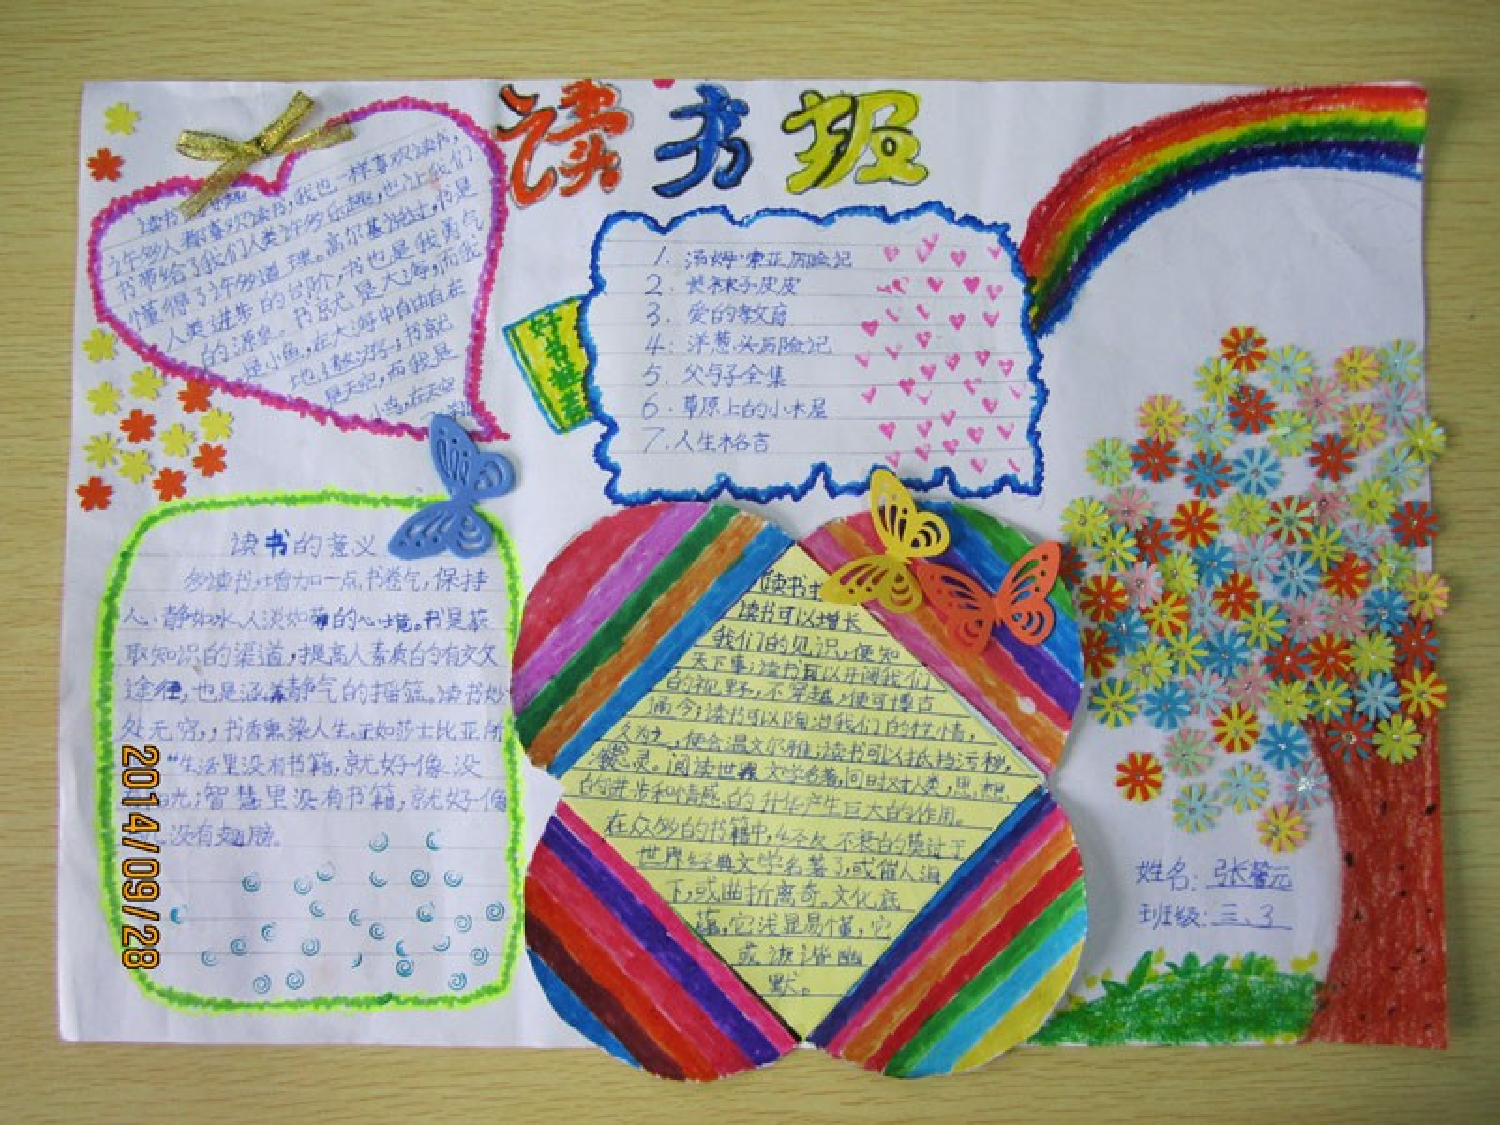 读书班
读书
许多人都喜欢读书,我也一样喜欢读书,
书带给了我们人类许多乐趣,也让我们
懂得了许多道理。高尔基说过,书是
人类进步的台阶,书也是我勇气
的源泉。书就是大海,而我
是小鱼,在大海中自由自在
地遨游;书就
是天空,而我是
小鸟,在天空
好书推荐
1. 汤姆·索亚历险记
2. 长袜子皮皮
3. 爱的教育
4. 洋葱头历险记
5. 父与子全集
6. 草原上的小木屋
7. 人生格言
读书的意义
多读书,增加一点书卷气,保持
人静如水、人淡如菊的心境。书是获
取知识的渠道,提高人素质的有效
途径,也是涵养静气的摇篮。读书妙
处无穷,书香熏染人生。正如莎士比亚所
“生活里没有书籍,就好像没
光;智慧里没有书籍,就好像
没有翅膀。
读书
读书可以增长
我们的见识,便知
天下事;读书可以开阔我们
的视野,不穿越,便可博古
通今;读书可以陶冶我们的性情,
便会温文尔雅;读书可以抵挡污秽,
灵。阅读世界文学名著,同时对人类,思想
的进步和情感的升华产生巨大的作用。
在众多的书籍中,经久不衰的莫过于
世界经典文学名著了,或催人泪
下,或曲折离奇。文化底
蕴,它浅显易懂,它
或诙谐幽
默。
姓名:张
班级:三、3
2014/09/28